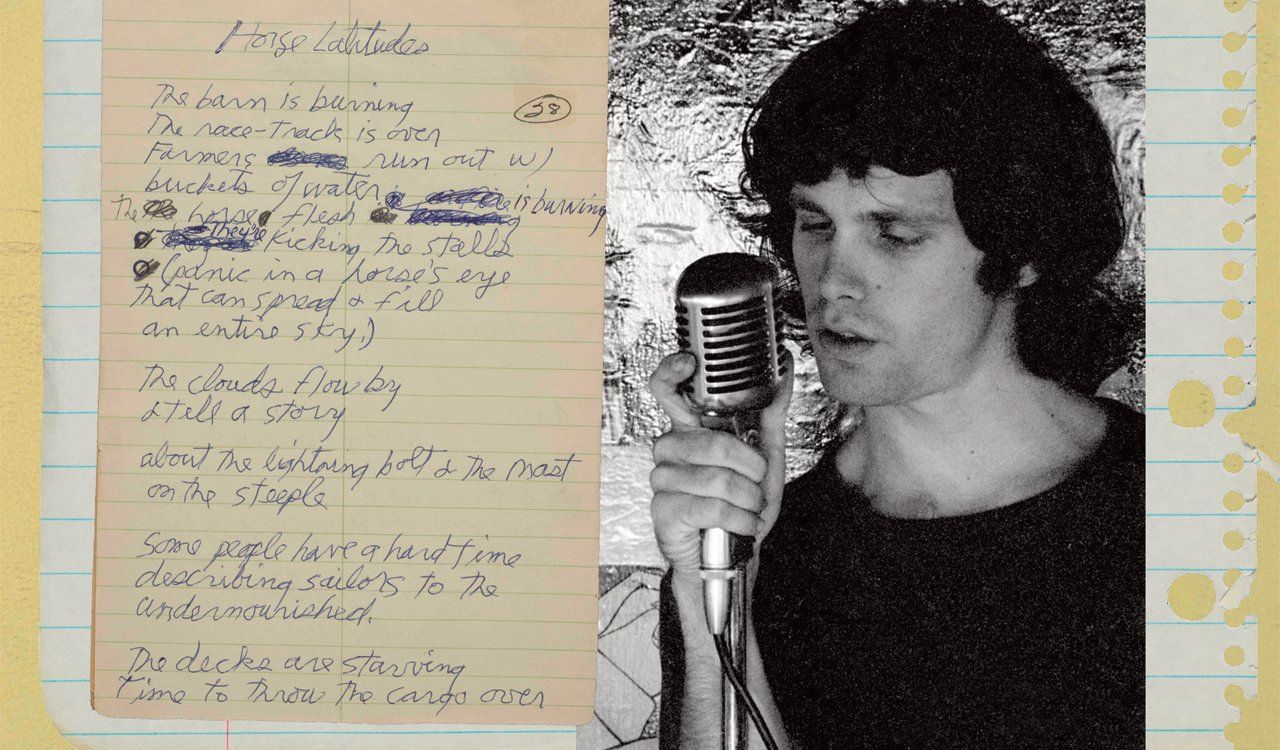 Horse Latitudes
The barn is burning
58
The race-track is over
Farmers run out w/
buckets of water is burning
The horse flesh
They're Kicking the stalls
(panic in a horse's eye
that can spread & fill
an entire sky.)
The clouds flow by
& tell a story
about the lightning bolt & the mast
on the steeple
Some people have a hard time
describing sailors to the
undernourished.
The decks are starving
Time to throw the cargo over